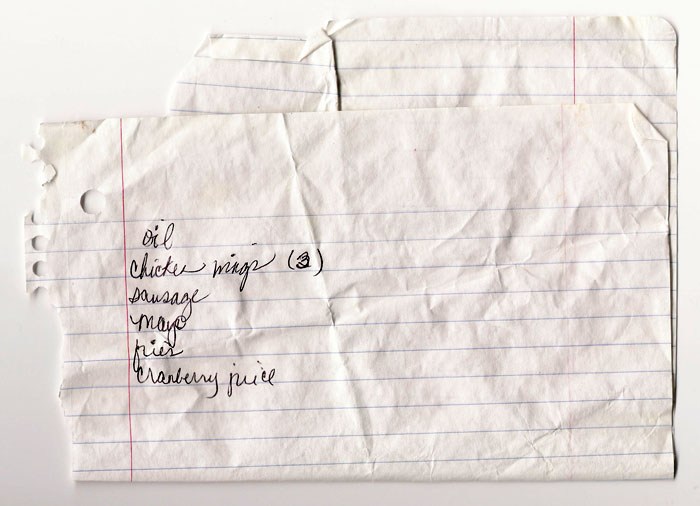 oil
chicken wings (3)
sausage
mayo
fries
cranberry juice